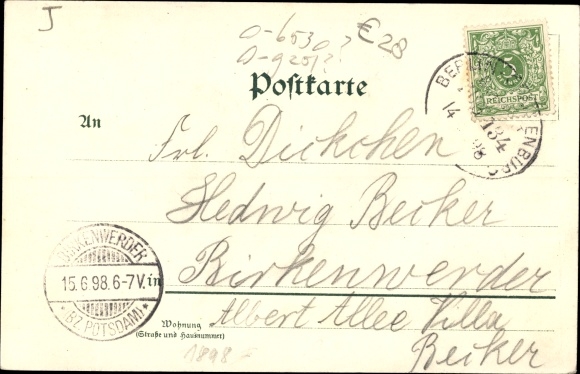 J
0-6530?
0-9201?
€28
Postkarte
5
REICHSPOST
BERLIN
14
98
An
Frl. Dickchen
Hedwig Becker
BIRKENWERDER
15.6 98.6-7V.
* BZ. POTSDAM *
in
Birkenwerder
Wohnung
(Straße und Hausnummer)
Albert Allee Villa
Becker
1898